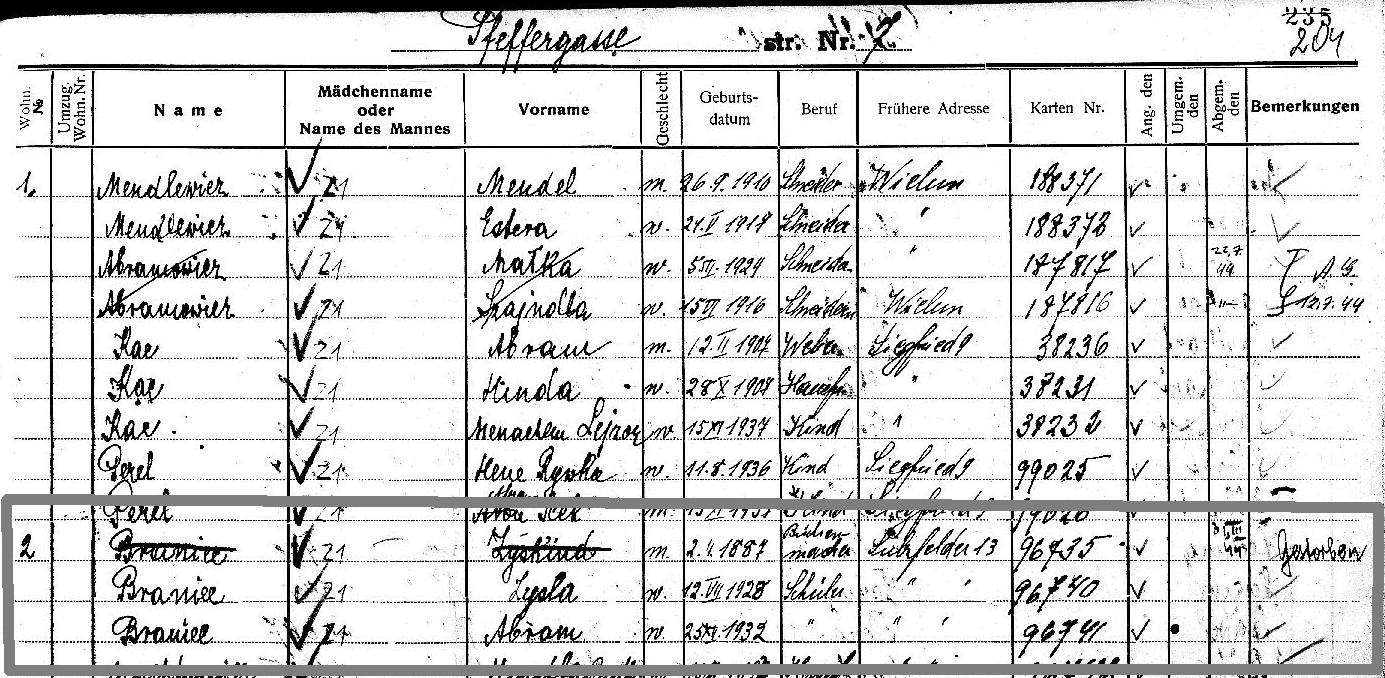 Pfeffergasse str. Nr. 7
235
204
Wohn. № Umzug. Wohn. Nr. Name Mädchenname oder Name des Mannes Vorname Geschlecht Geburts-datum Beruf Frühere Adresse Karten Nr. Ang. den Umgem. den Abgem. den Bemerkungen
1. Mendlewicz 21 Mendel m. 26.9.1910 Schneider Wielun 188371
Mendlewicz 21 Estera w. Schneider " 188372
Abramowicz 21 Matka w. Schneider " 187817 A.G.
Abramowicz 21 Szajndla w. 15 VI 1916 Schneiderin Wielun 187816 12.7.44
Kac 21 Abram m. 12.II 1904 Weber Siegfried 9 38236
Kac 21 Hinda w. 28 X 1904 " 38231
Kac 21 Menachem Lejzor 15 XI 1937 Kind " 38232
Perel 21 Hene Rywka w. 11.8.1936 Kind Siegfried 9 99025
Perel 21 Icek m. Kind Siegfried 9 99026
2 Braniec 21 Zyskind m. 2.V.1887 macher Sulzfelder 13 96735 Gestorben
Braniec 21 Zysla w. 12 VII 1928 Schüler " " 96740
Braniec 21 Abram w. 25 XI 1932 " " " 96741